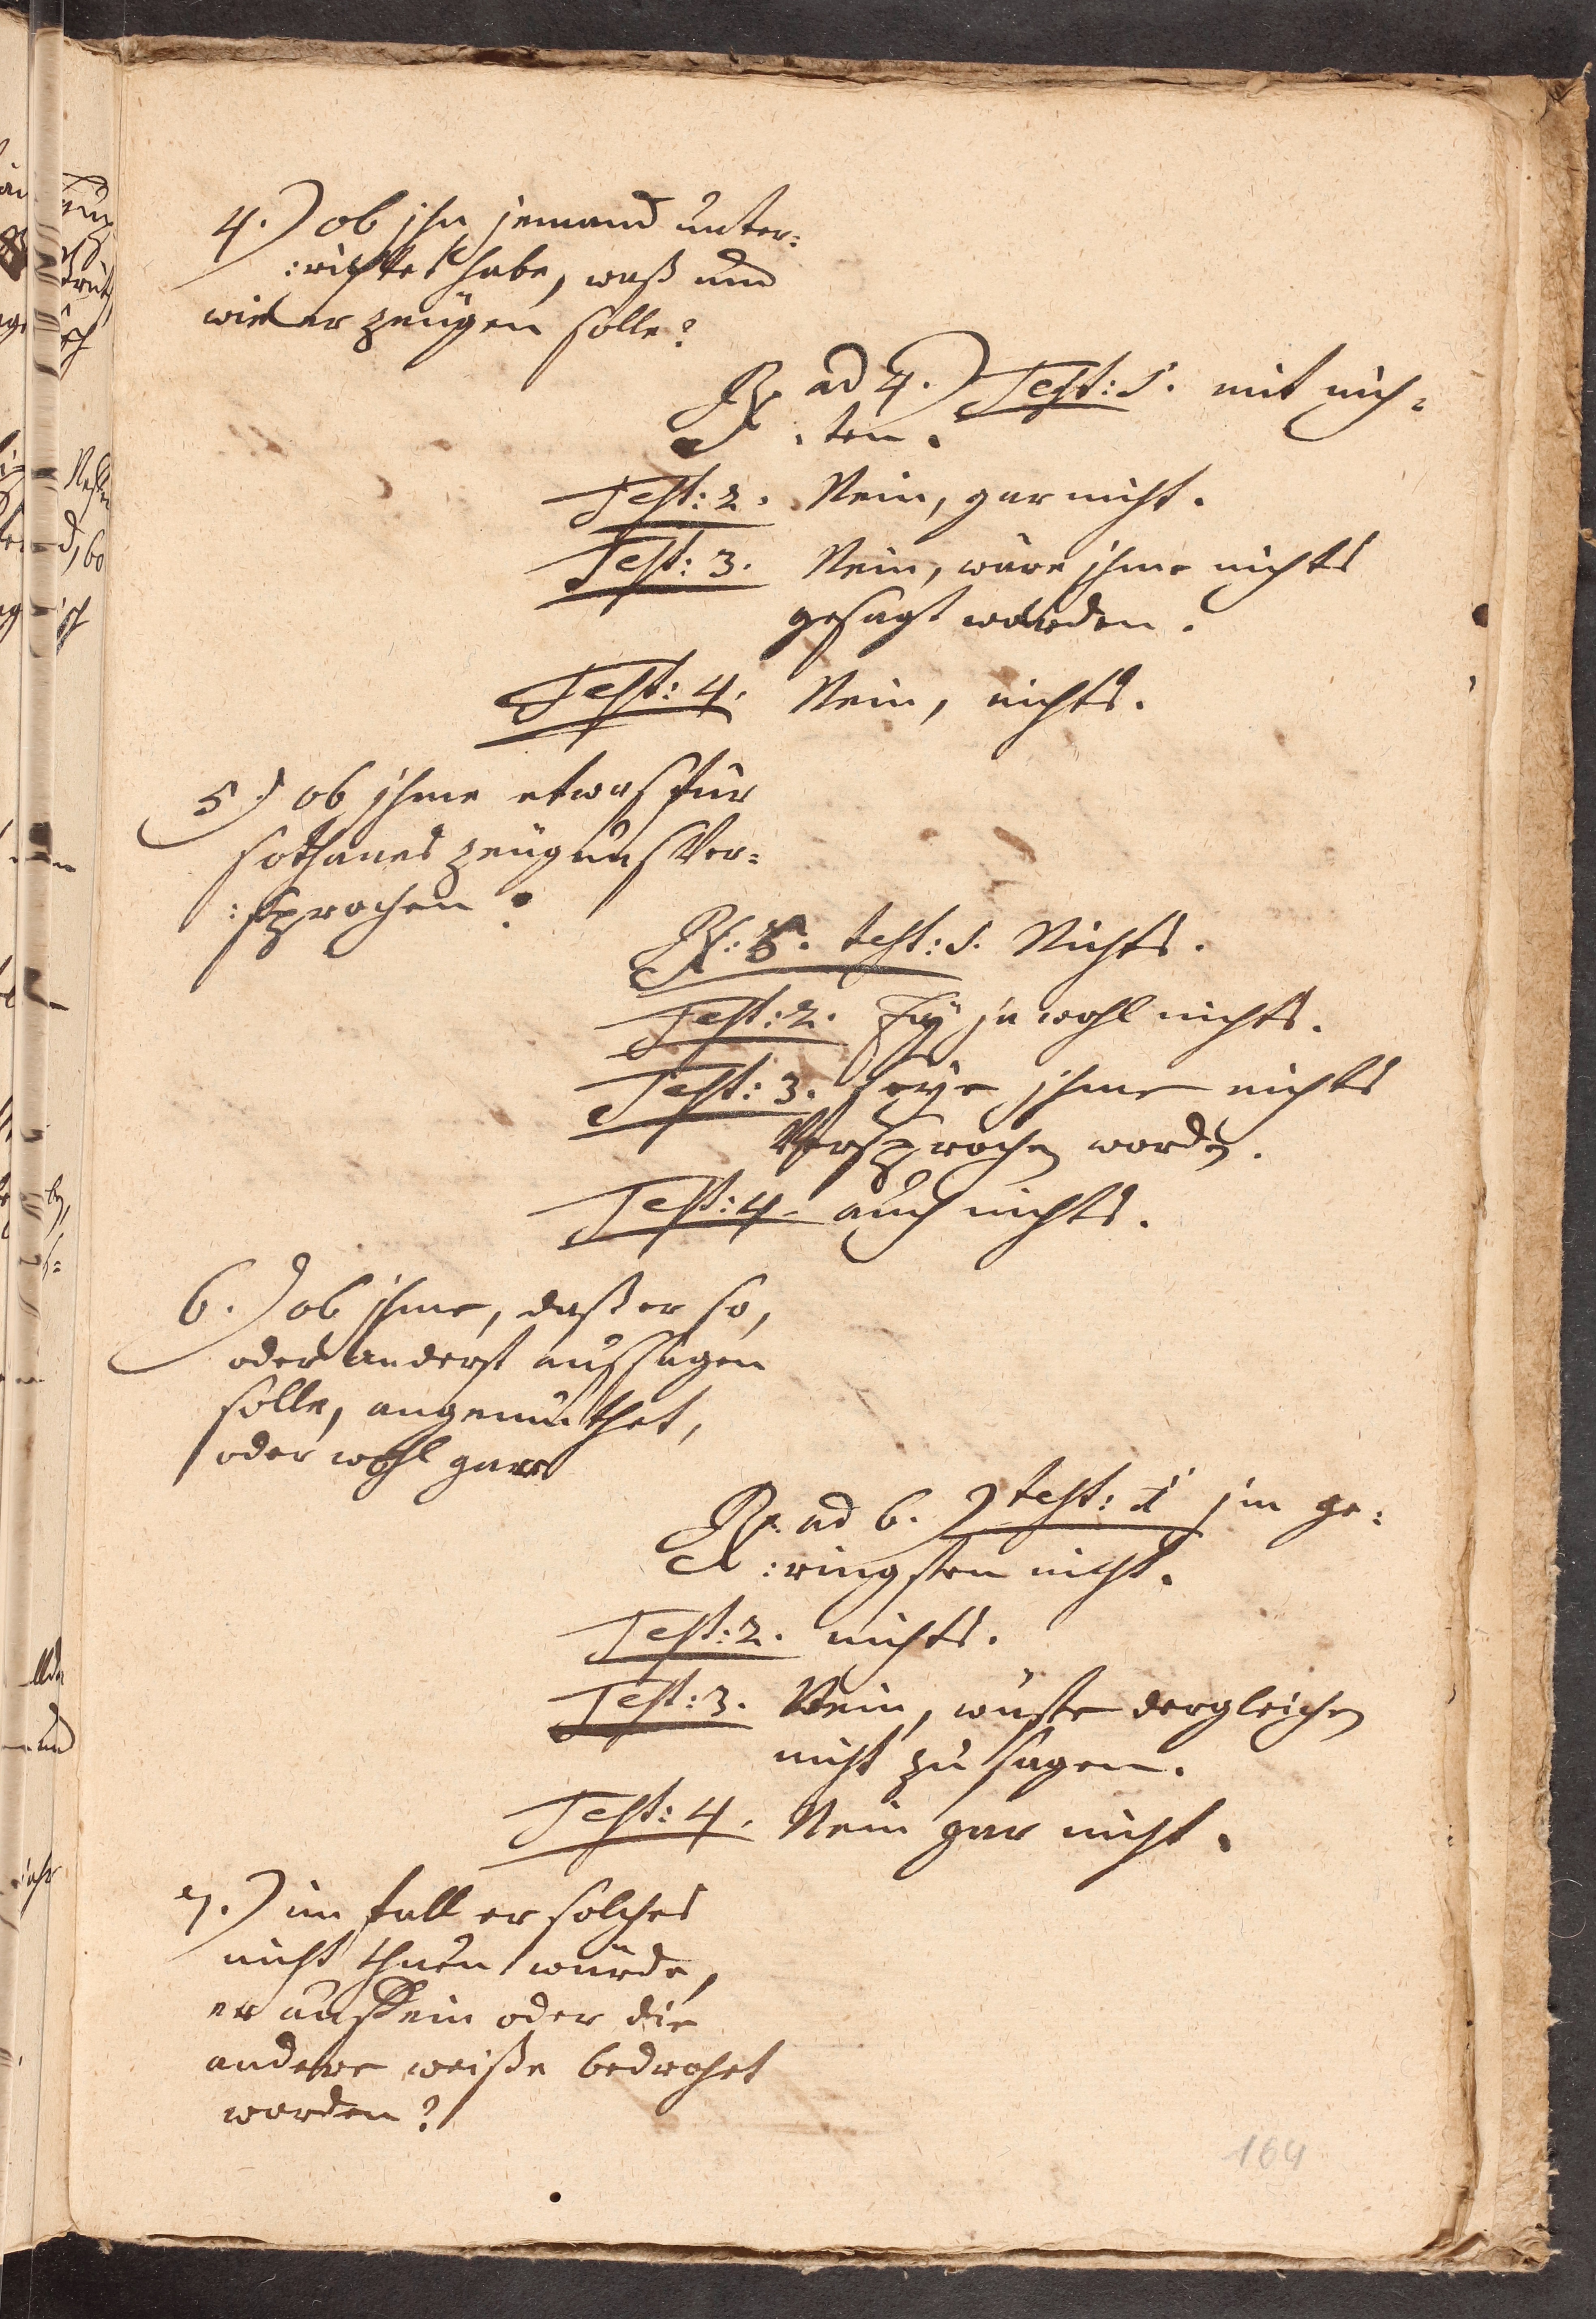 4.) ob ihn jemand unter=
:richtet habe, waß und
wie er zeügen solle?
Rx. ad 4.) Test: 1. mit nich=
:ten.
Test: 2. Nein, gar nicht.
Test: 3. Nein, wäre ihme nichts
gesagt worden.
Test: 4. Nein, nichts.
5.) ob ihme etwas für
sothanes zeügnus Ver=
:sprochen?
Rx: 5. test: 1. Nichts.
Test: 2. Ey ja wohl nichts.
Test: 3. seye ihme nichts
Versprochen worden.
Test: 4. auch nichts.
6.) ob ihme, daß er so,
oder anderst aussagen
solle, angemuthet,
oder wohl gar
Rx. ad 6.) test: 1 im ge=
:ringsten nicht.
Test: 2. nichts.
Test: 3. Nein, wüste dergleichen
nicht zu sagen.
Test: 4. Nein gar nicht.
7.) im fall er solches
nicht thuen würde,
er auf ein oder die
andere weiße bedrohet
worden?
164